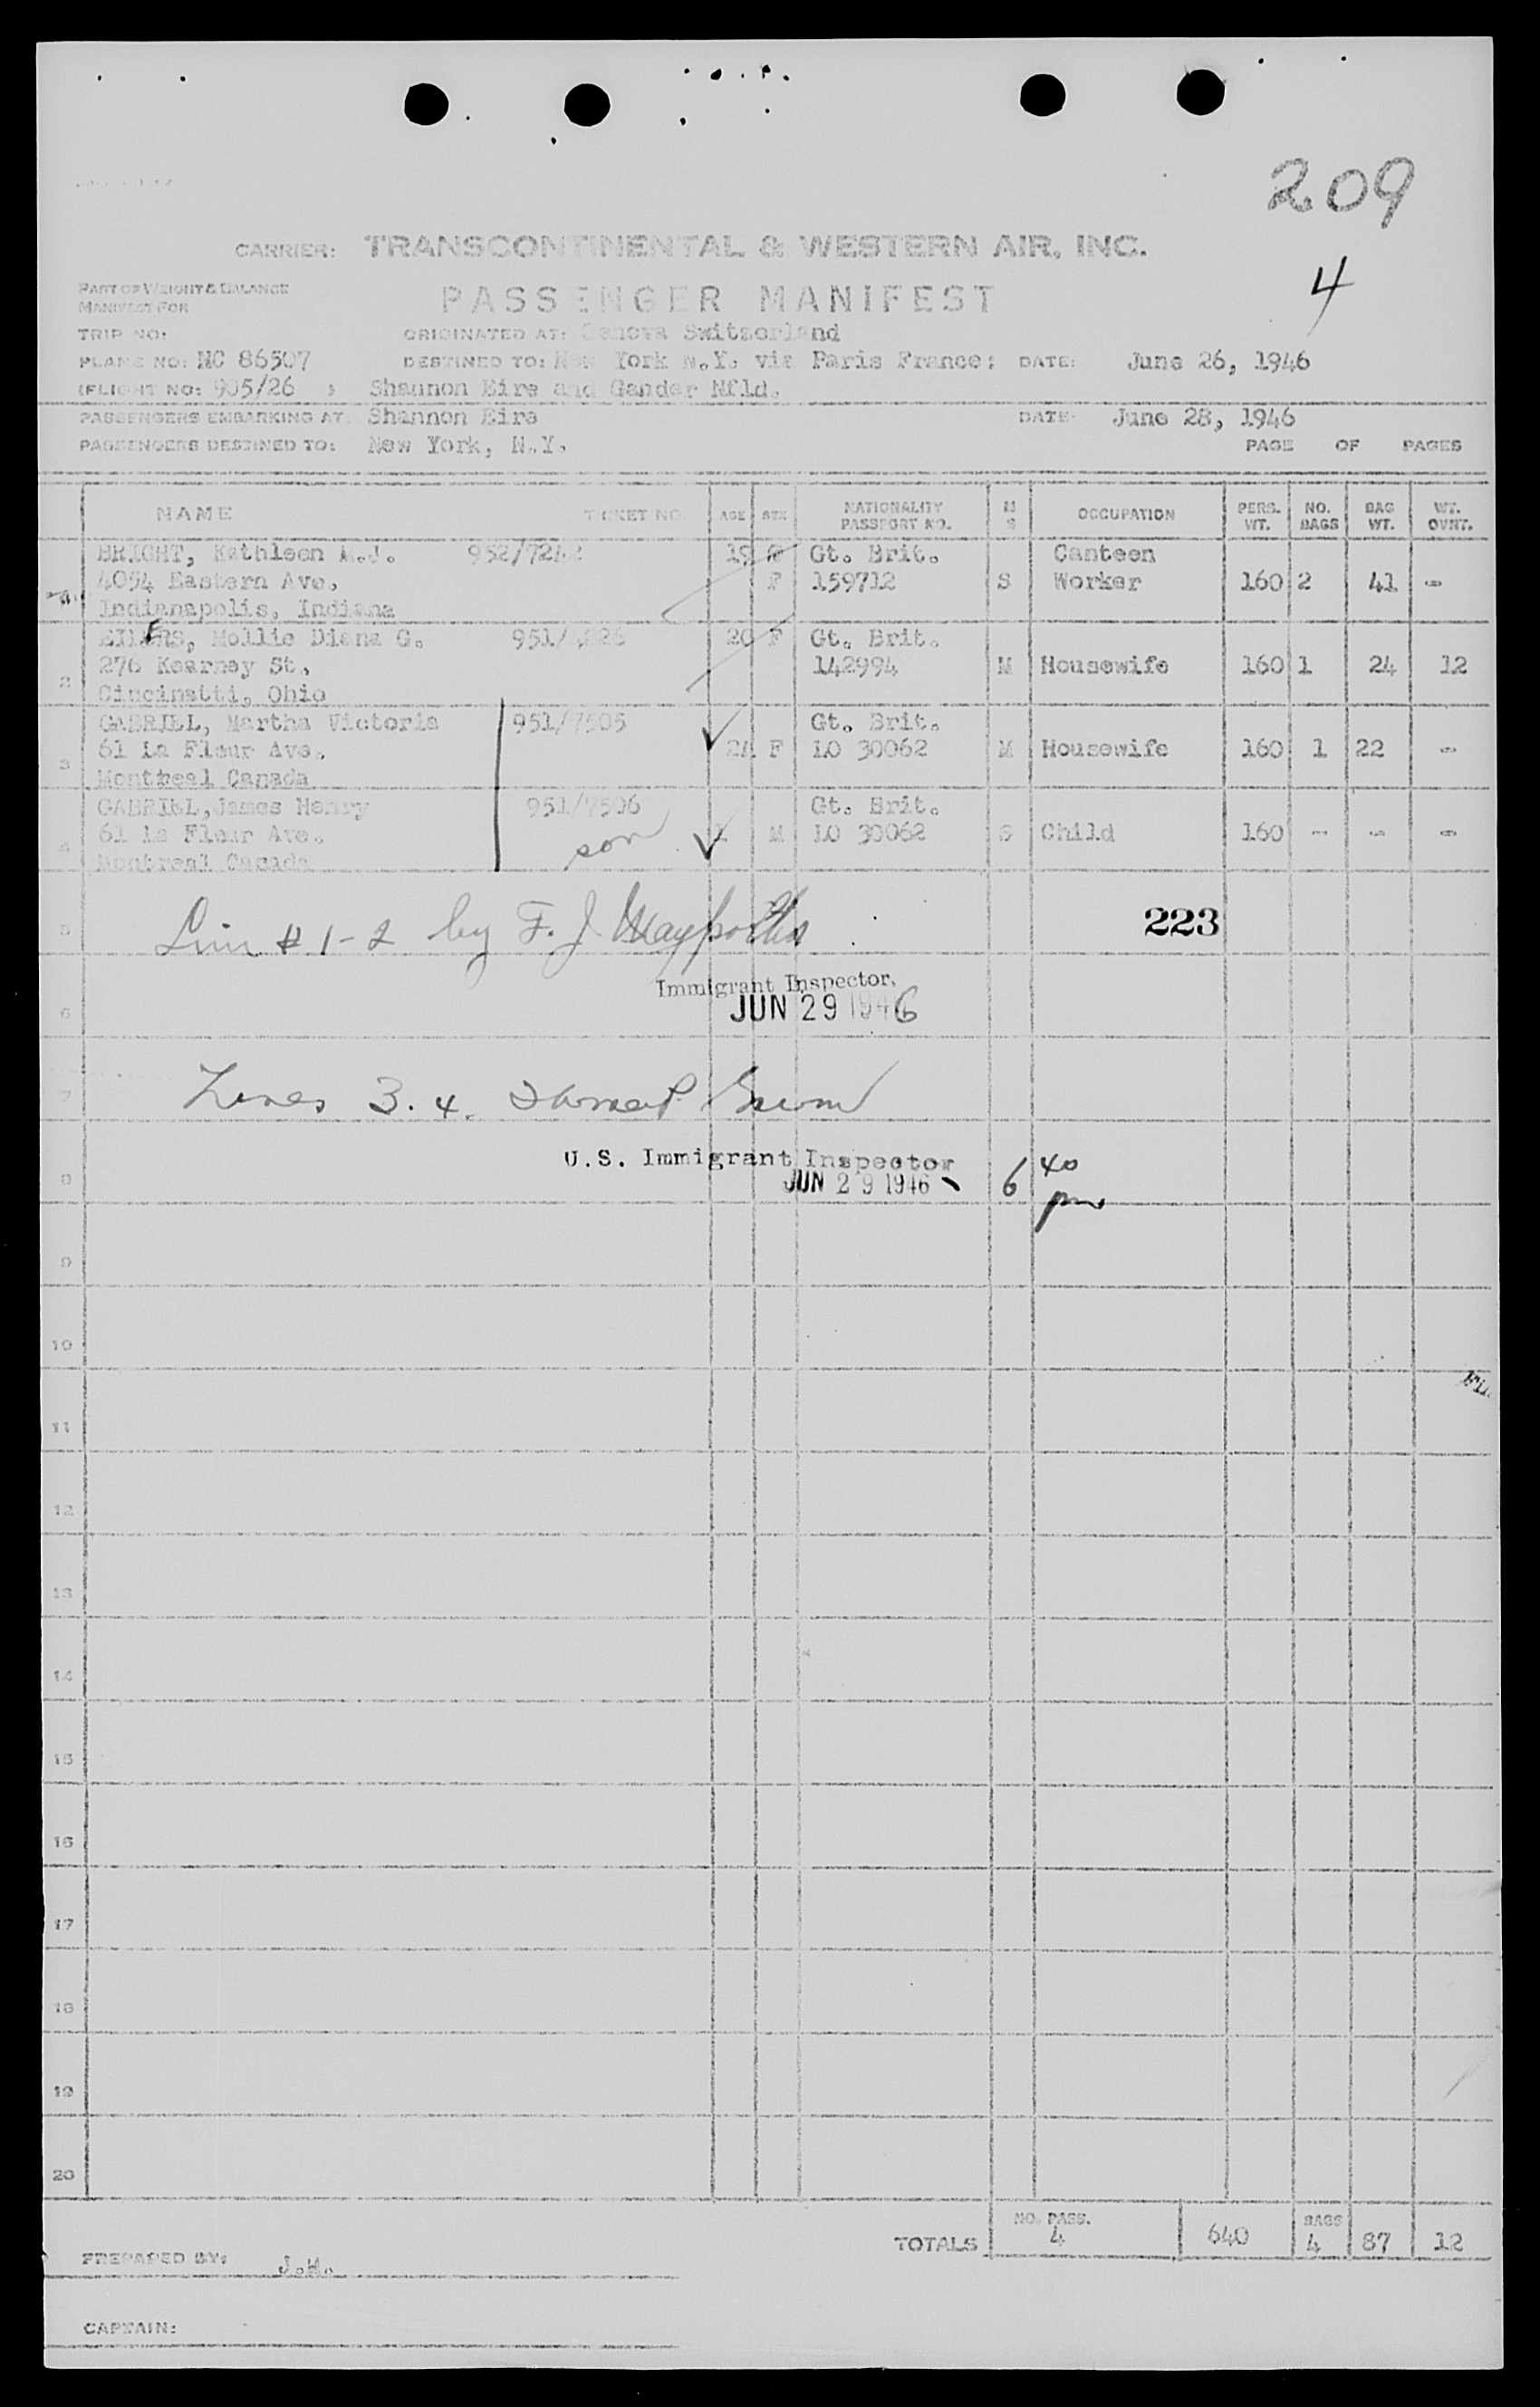 209
4
CARRIER: TRANSCONTINENTAL & WESTERN AIR, INC.
PART OF WEIGHT & BALANCE
MANIFEST FOR
PASSENGER MANIFEST
TRIP NO: ORIGINATED AT: Geneva Switzerland
PLANE NO: NC 86507 DESTINED TO: New York N.Y. via Paris France; DATE: June 26, 1946
(FLIGHT NO: 905/26 ) Shannon Eire and Gander Nfld.
PASSENGERS EMBARKING AT: Shannon Eire DATE: June 28, 1946
PASSENGERS DESTINED TO: New York, N.Y. PAGE OF PAGES
NAME TICKET NO. AGE SEX NATIONALITY PASSPORT NO. M S OCCUPATION PERS. WT. NO. BAGS BAG WT. WT. OVRT.
BRIGHT, Kathleen M.J. 952/7242 19 Gt. Brit. Canteen
4054 Eastern Ave., F 159712 S Worker 160 2 41 -
Indianapolis, Indiana
EILERS, Mollie Diana G. 951/ 20 F Gt. Brit.
2 276 Kearney St., 142994 M Housewife 160 1 24 12
Cincinatti, Ohio
GABRIEL, Martha Victoria 951/7505 Gt. Brit.
3 61 La Fleur Ave. 24 F LO 30062 M Housewife 160 1 22 -
Montreal Canada
GABRIEL, James Henry 951/7506 Gt. Brit.
4 61 La Fleur Ave. son M LO 30062 S Child 160 - - -
Montreal Canada
5 # 1-2 by F. J. 223
Immigrant Inspector.
6 JUN 29 1946
7 Lines 3. 4.
U.S. Immigrant Inspector
8 JUN 29 1946 6 40 pm
9
10
11
12
13
14
15
16
17
18
19
20
TOTALS NO. PASS. 4 640 BAGS 4 87 12
PREPARED BY: J.H.
CAPTAIN: